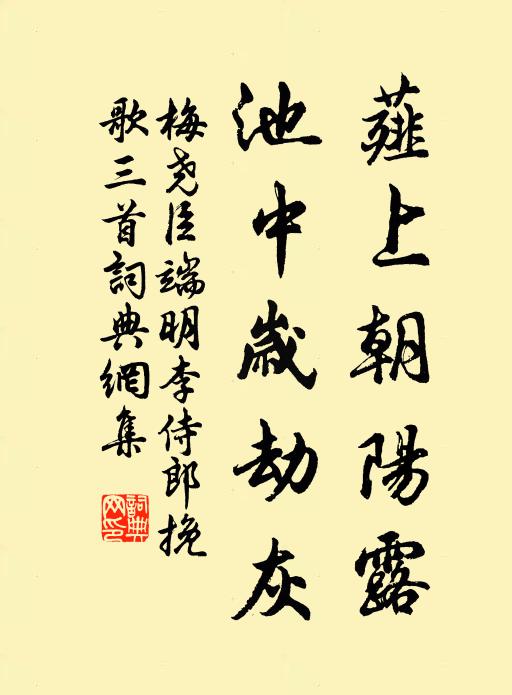 薤上朝陽露
池中歲劫灰
梅堯臣端明李侍郎挽
歌三首詞典網集
詞典
网印